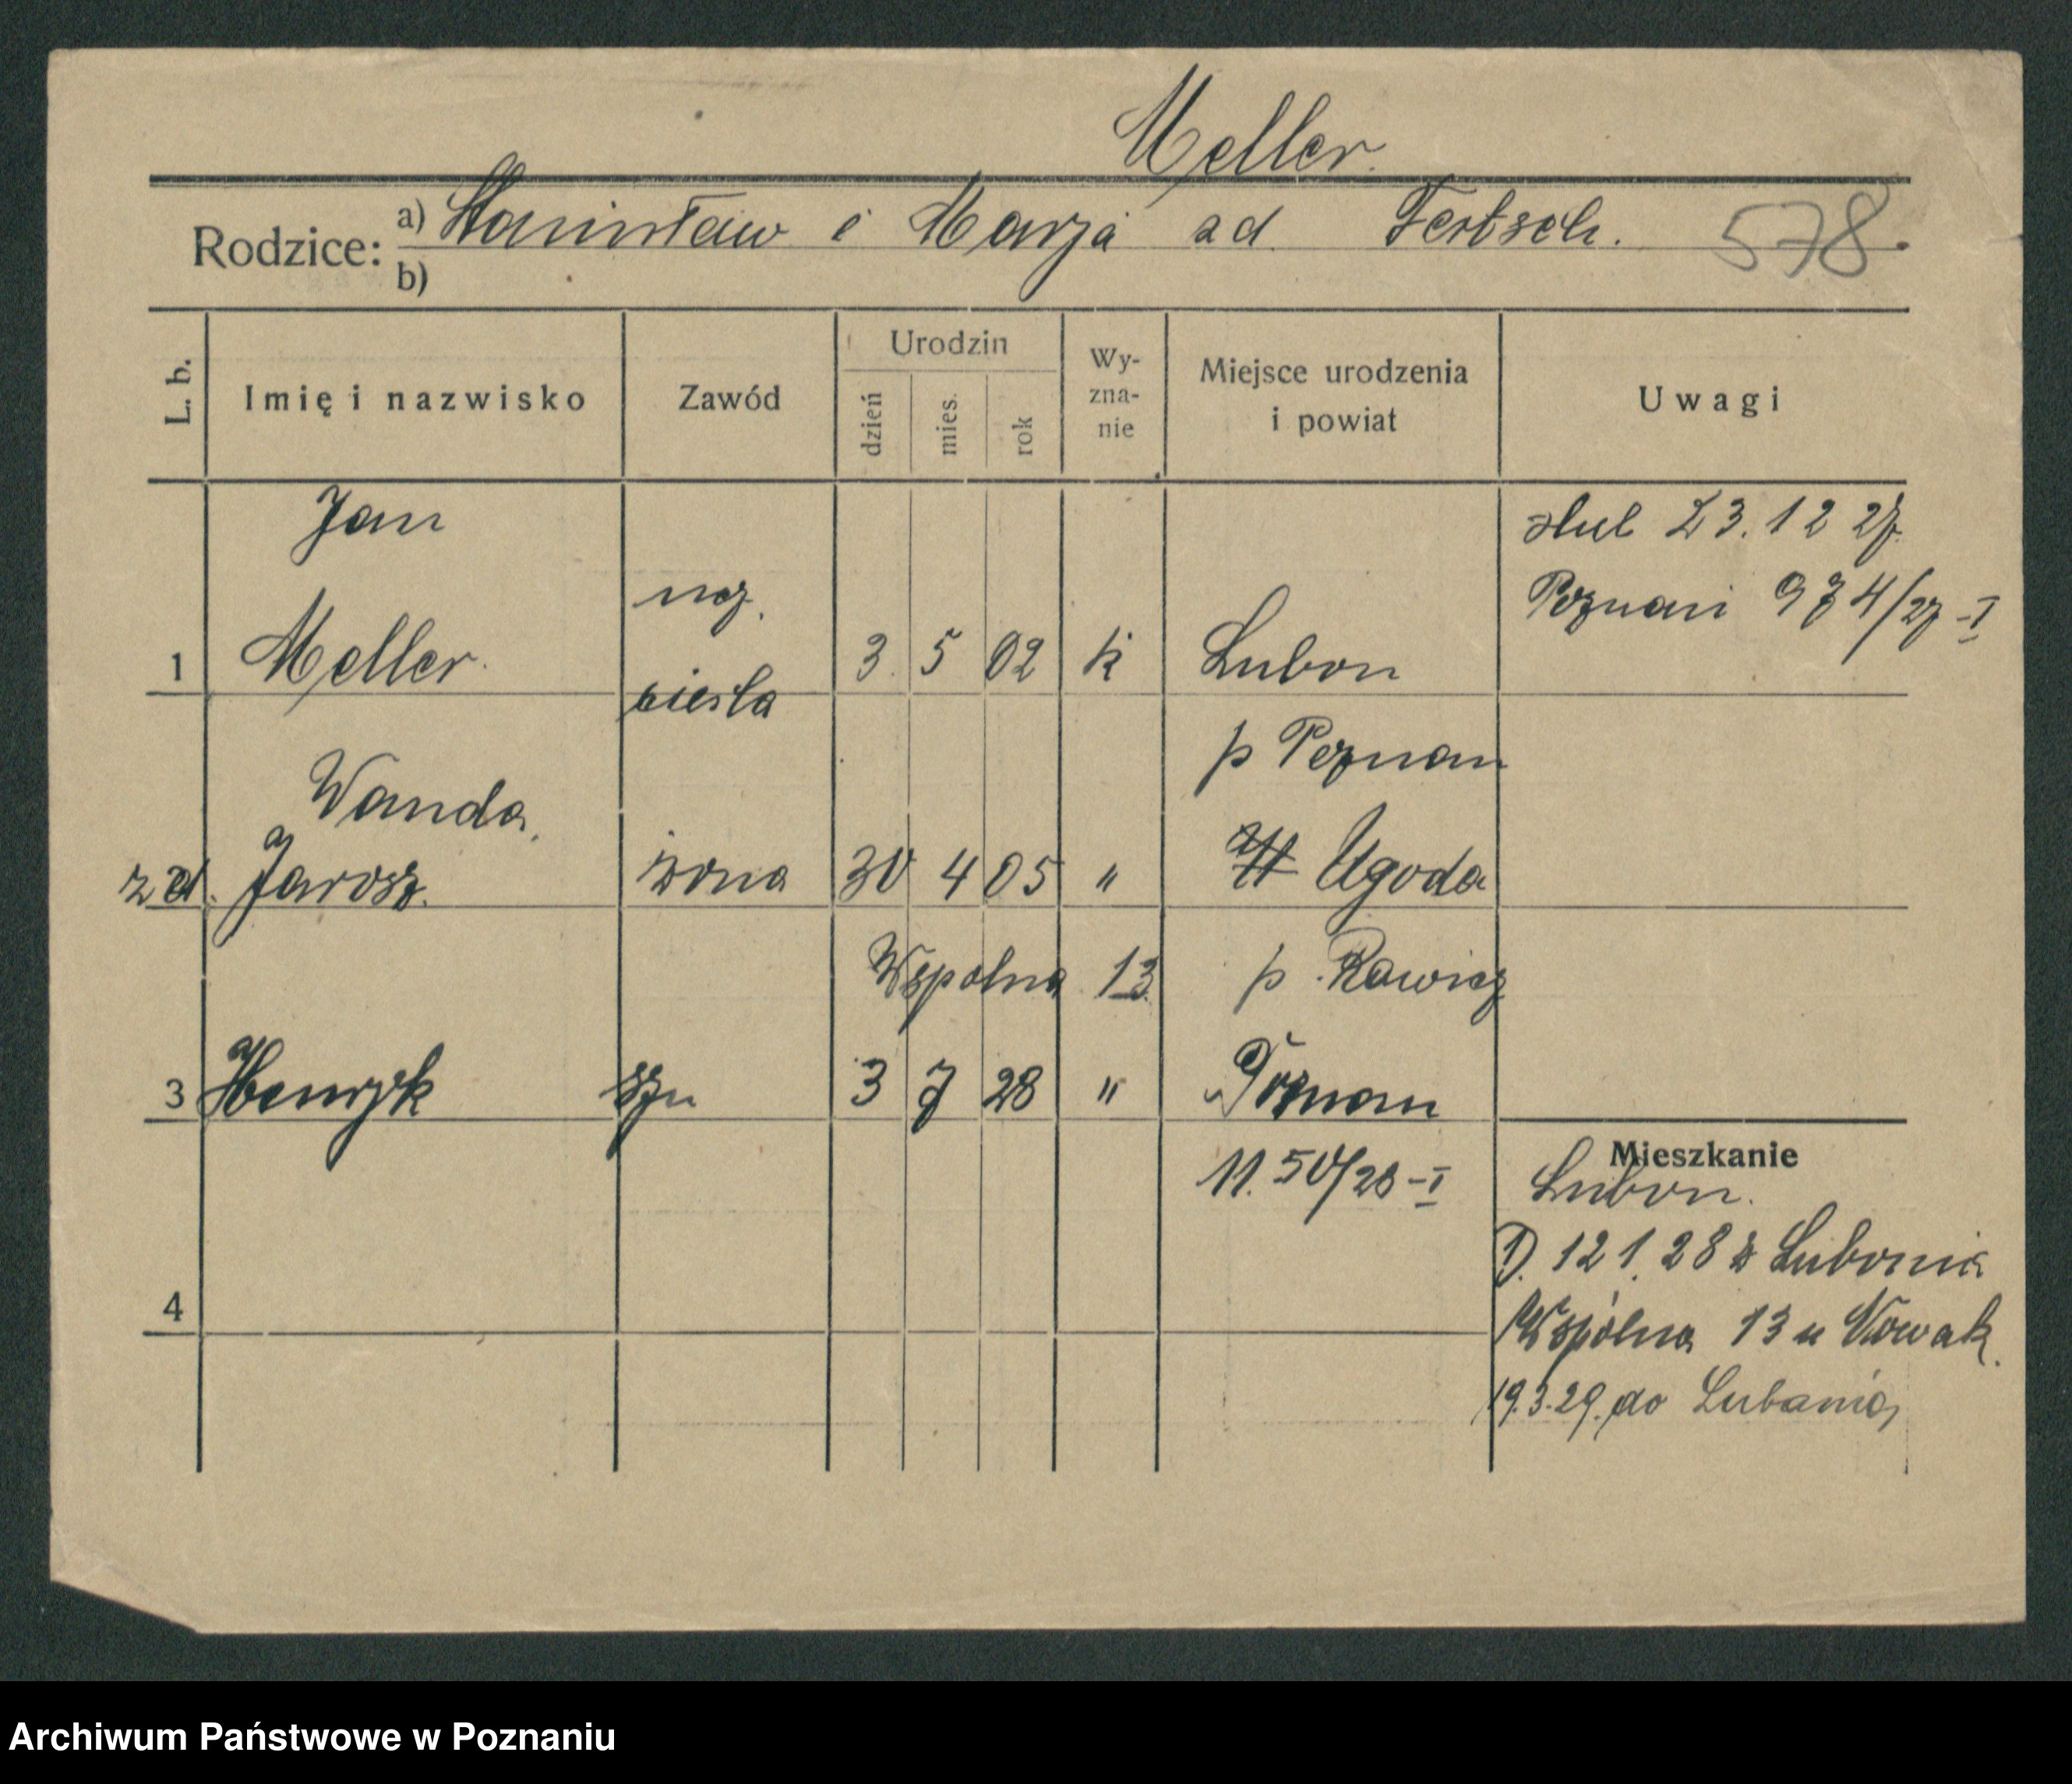 Meller.
Rodzice: a) Stanisław i Marja zd. Fertsch. 578
b)
L. b. Imię i nazwisko Zawód Urodzin dzień mies. rok Wy-zna-nie Miejsce urodzenia i powiat Uwagi
Jan ślub 23.12 27.
Poznań 974/27-I
1 Meller. 3. 5 02 k Luboń
cieśla
p Poznań
Wanda
2 zd. Jarosz. żona 30 4 05 " Ugoda
Wspólna 13. p. Rawicz
3 Henryk syn 3 7 28 " Poznań
11.50/28-I
Mieszkanie
Luboń.
D. 12 1. 28 z Lubonia
Wspólna 13 u Nowak.
4
19.3.29. do Lubonia
Archiwum Państwowe w Poznaniu